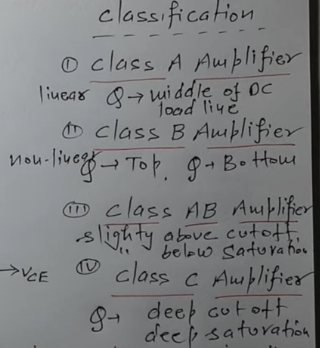 classification
① class A Amplifier
linear Q→ middle of DC
load line
ⓘⓘ class B Amplifier
non-linear Q → Top, Q→ Bottom
ⓘⓘⓘ class AB Amplifier
slighty above cutoff,
below saturation
→VCE ⓘⓥ class C Amplifier
Q→ deep cutoff
deep saturation